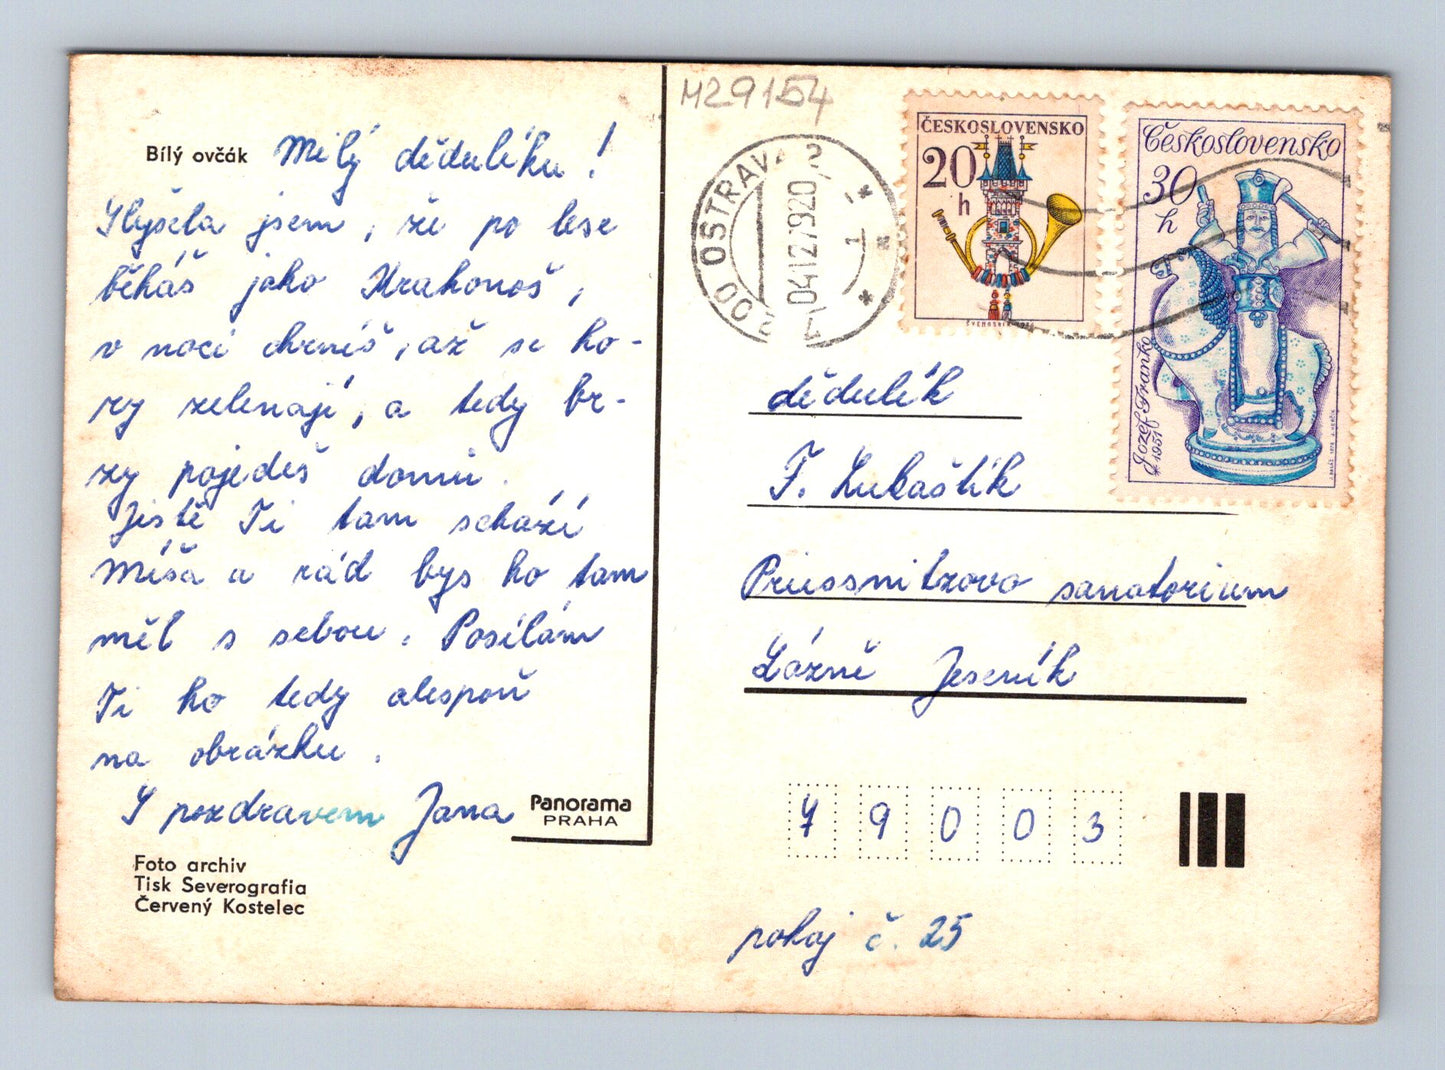 Bílý ovčák
Milý dědulíku!
Slyšela jsem, že po lese
běháš jako Krakonoš,
v noci chrníš, až se ho-
ry zelenají, a tedy br-
zy pojedeš domů.
Jistě Ti tam schází
Míša a rád bys ho tam
měl s sebou. Posílám
Ti ho tedy alespoň
na obrázku.
S pozdravem Jana
Panorama
PRAHA
Foto archiv
Tisk Severografia
Červený Kostelec
M29154
OSTRAVA 2
04.12.79 20
ČESKOSLOVENSKO
20
h
Československo
30
h
Jozef Franko
* 1951
dědulík
F. Lukaštík
Priessnitzovo sanatorium
Lázně Jeseník
79003
pokoj č. 25